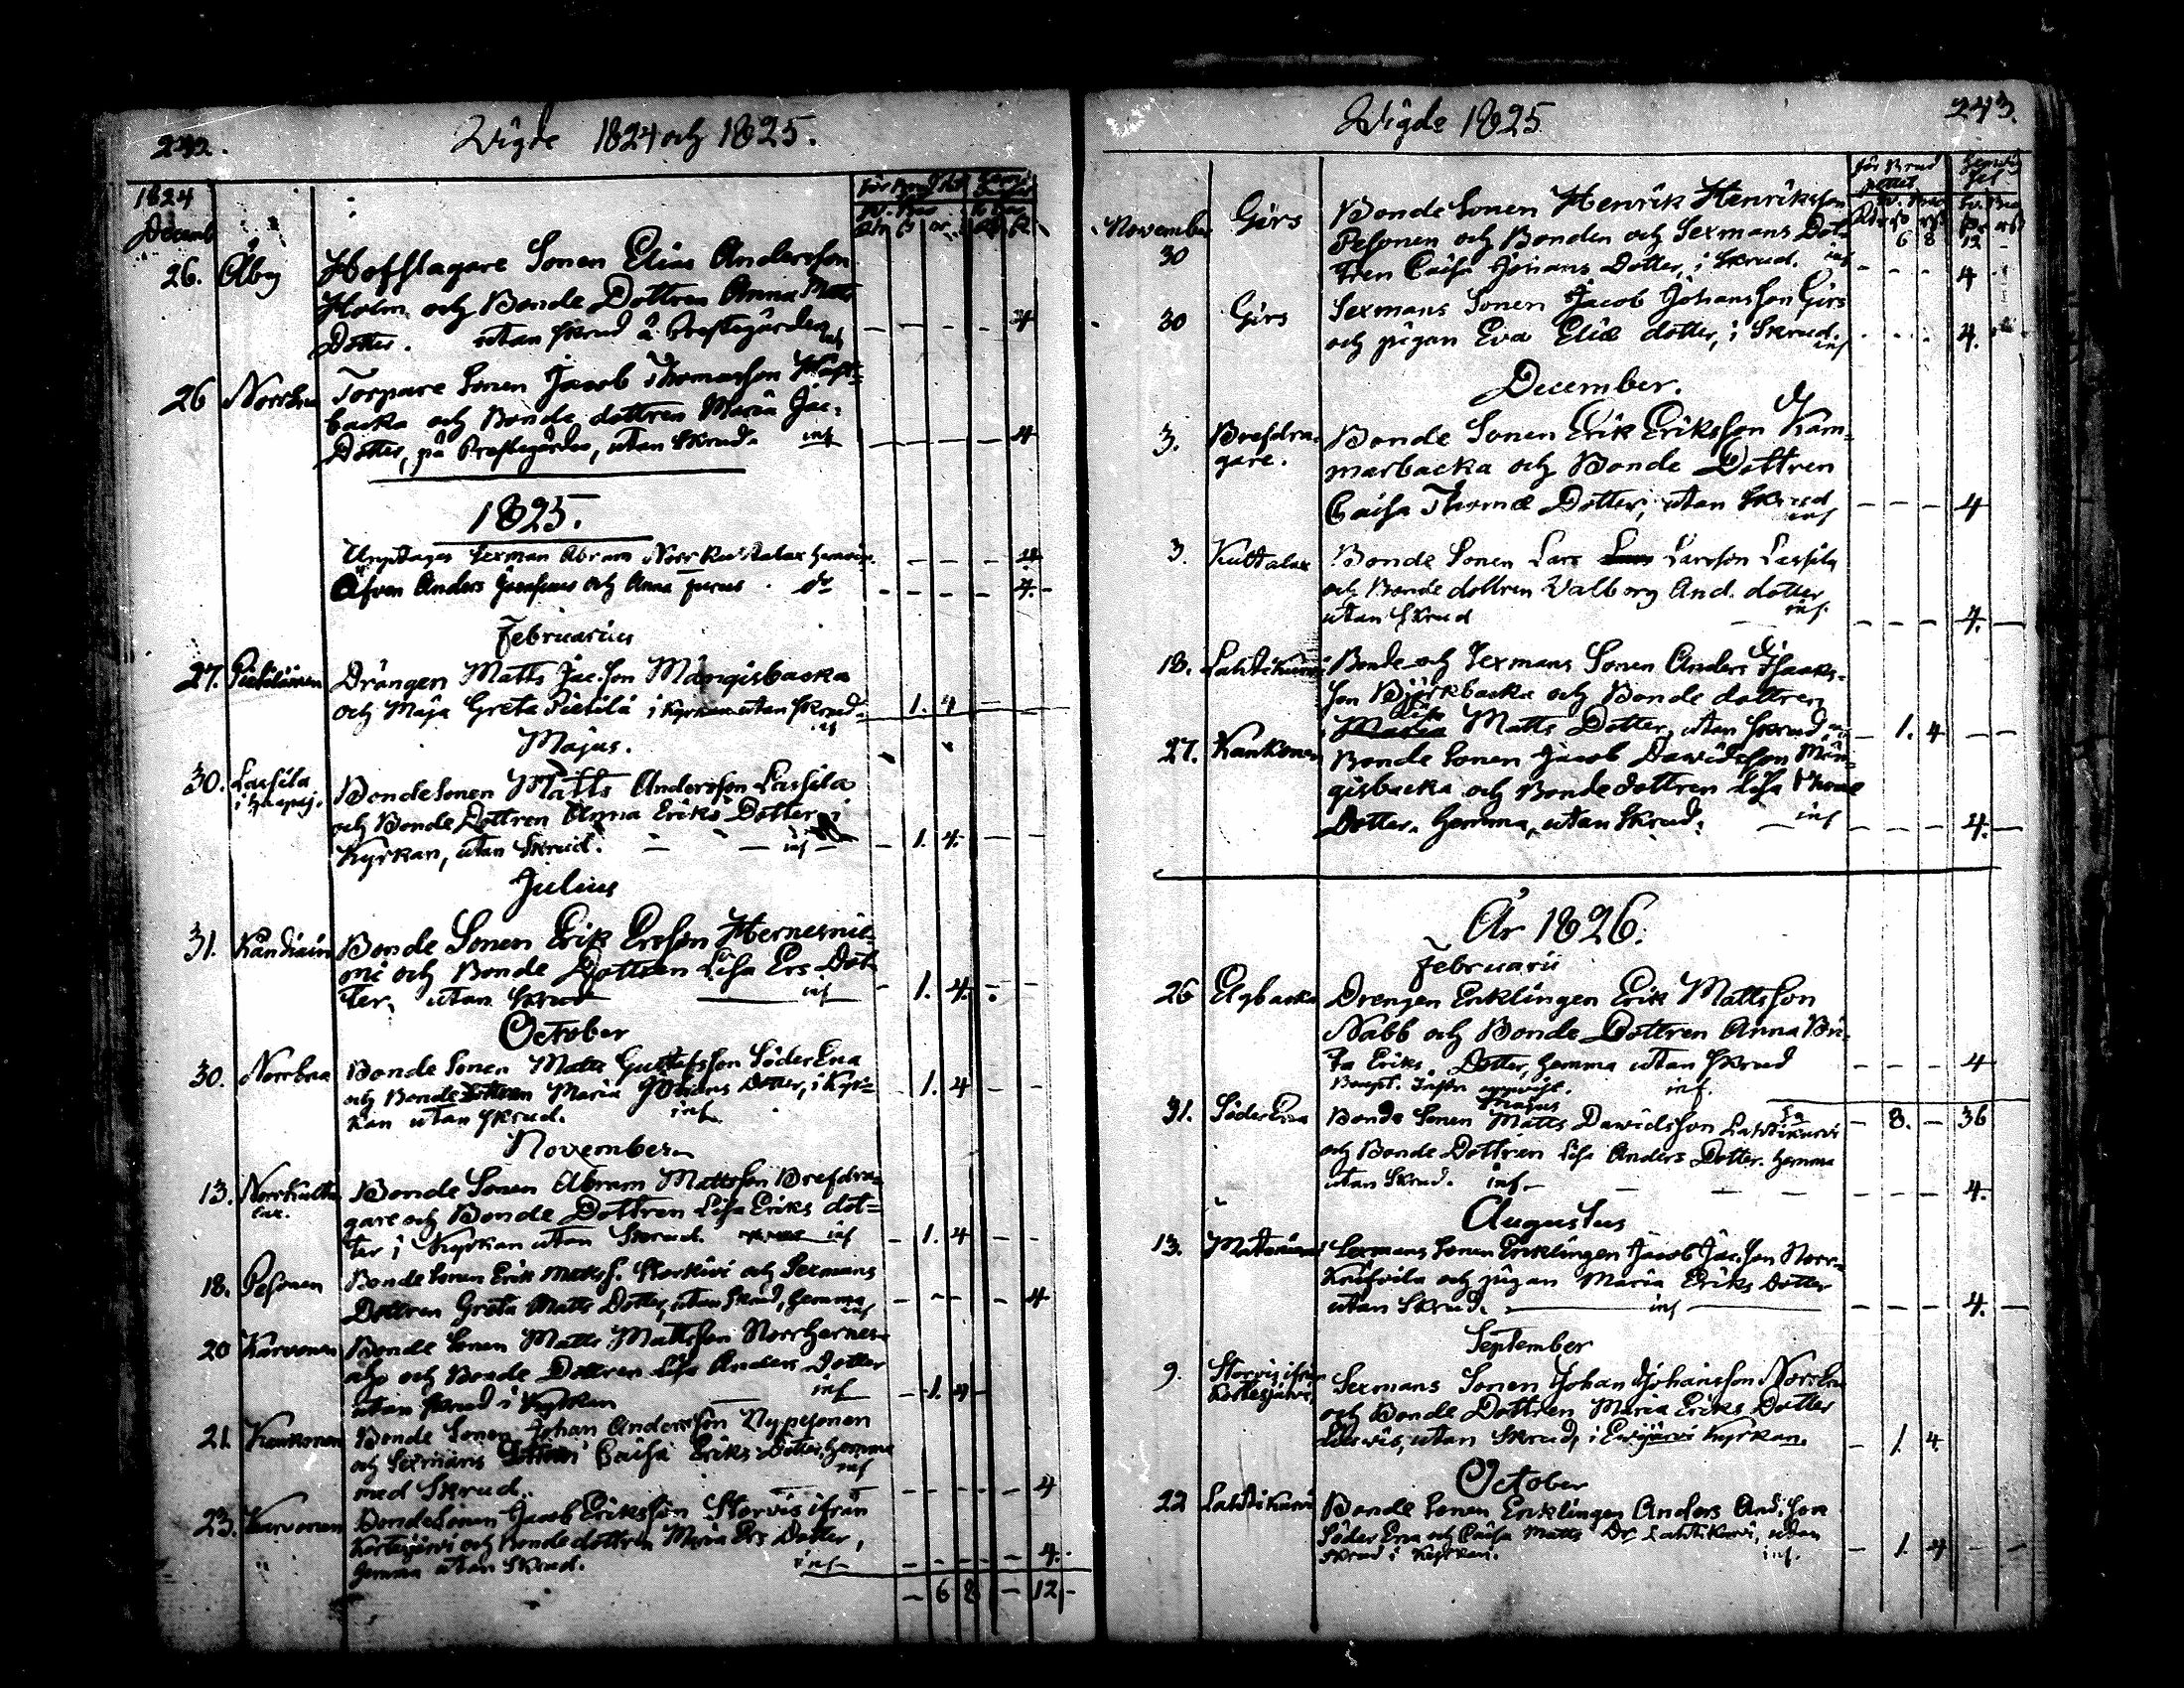 242.
Wigde 1824 och 1825.
1824
Decemb
26. Åby Hofslagare Sonen Elias Andersson
Holm och Bonde Dottren Anna Matts
Dotter. utan skrud å Prestegården inf — — — — 4
26 NorrEna Torpare Sonen Jacob Thomasson
backa och Bonde dottren Maria Jac:
Dotter, på Prestegården, utan Skrud. inf — — — — 4
1825.
Sexman Abram
Äfven Anders och Anna do — — — — 4.
Februarius
27. Drängen Matts Jac:son Mångisbacka
och Maja Greta Pietilä i kyrkan utan skrud. inf 1. 4 —
Majus.
30. Lassila Bonde Sonen Matts Andersson Lassila
och Bonde Dottren Anna Eriks Dotter i
Kyrkan, utan Skrud. — — inf — — 1. 4. — —
Julius
31. Bonde Sonen Erik Ersson Hernesnie-
mi och Bonde Dottren Lisa Ers Dot-
ter, utan Skrud inf — 1. 4. — —
October
30. NorrEna Bonde Sonen Matts Gustafsson SöderEna
och Bonde Dottren Maria Johans Dotter, i Kyr-
kan utan skrud. inf — 1. 4 — —
November
13. Norrkulta
lax. Bonde Sonen Abram Mattsson Brefdra-
gare och Bonde Dottren Lisa Eriks dot=
ter i Kyrkan utan Skrud. inf — 1. 4 — —
18. Pesonen Bonde Sonen Erik Matss. Storkivi och Sexmans
Dottren Greta Matts Dotter, utan skrud, hemma inf — — — — 4
20 Karvonen Bonde Sonen Matts Mattsson Norrhernes-
aho och Bonde Dottren Lisa Anders Dotter
utan skrud i Kyrkan inf — 1. 4 —
21. Kankonen Bonde Sonen Johan Andersson Nypesonen
och Sexmans Dottren Caisa Eriks Dotter, hemma
med Skrud. inf — — — — 4
23. Karvonen Bonde Sonen Jacob Eriksson Storvis ifrån
Kortesjärvi och Bonde dottren Maria Ers Dotter,
hemma utan Skrud. inf — — — — 4.
— 6 8 — 12 —
Wigde 1825
243.
för Brud
November
30 Girs Bonde Sonen Henrik Henriksson
Pesonen och Bonden och Sexmans Dot-
tren Caisa Johans Dotter, i Skrud. inf — — — 4
6 8 12 —
30 Girs Sexmans Sonen Jacob Johansson Girs
och pigan Eva Eliæ dotter, i Skrud. inf 4.
December.
3. Brefdra-
gare. Bonde Sonen Erik Eriksson Kam-
marbacka och Bonde Dottren
Caisa Thomæ Dotter, utan Skrud inf — — — 4
3. Kultalax Bonde Sonen Lars Larsson Lassila
och Bonde dottren Valborg And. dotter
utan Skrud — inf. — — — 4. —
18. Lahtikurvi Bonde och Sexmans Sonen Anders Isaaks-
son Björkbacka och Bonde dottren
Lisa Matts Dotter, utan skrud, — 1. 4 — —
27. Kankonen Bonde Sonen Jacob Dawidsson Mån-
gisbacka och Bonde dottren Lisa Thomæ
Dotter. hemma, utan Skrud. — inf — — — 4. —
År 1826.
Februarii
26 Elgbacka Drengen Enklingen Erik Mattsson
Nabb och Bonde Dottren Anna Bri-
ta Eriks Dotter, hemma utan skrud — — — 4
inf.
Majus — 8. — 36
31. SöderEna Bonde Sonen Matts Dawidsson Lahtikurvi
och Bonde Dottren Lisa Anders Dotter. hemma
utan Skrud. inf. — — — — 4.
Augustus
13. Sexmans Sonen Enklingen Jacob Jac.son Norr-
och pigan Maria Eriks Dotter
utan Skrud. — inf — — — — 4. —
September
9. Storvis ifrån
Kortesjärvi Sexmans Sonen Johan Johansson NorrEna
och Bonde Dottren Maria Eriks Dotter
Storvis, utan Skrud, i Ewijärvi Kyrkan. — 1. 4.
October
22 Lahtikurvi Bonde Sonen Enklingen Anders And.son
SöderEna och Caisa Matts Dr. Lahtikurvi, utan
skrud i Kyrkan. inf. — 1. 4 — —